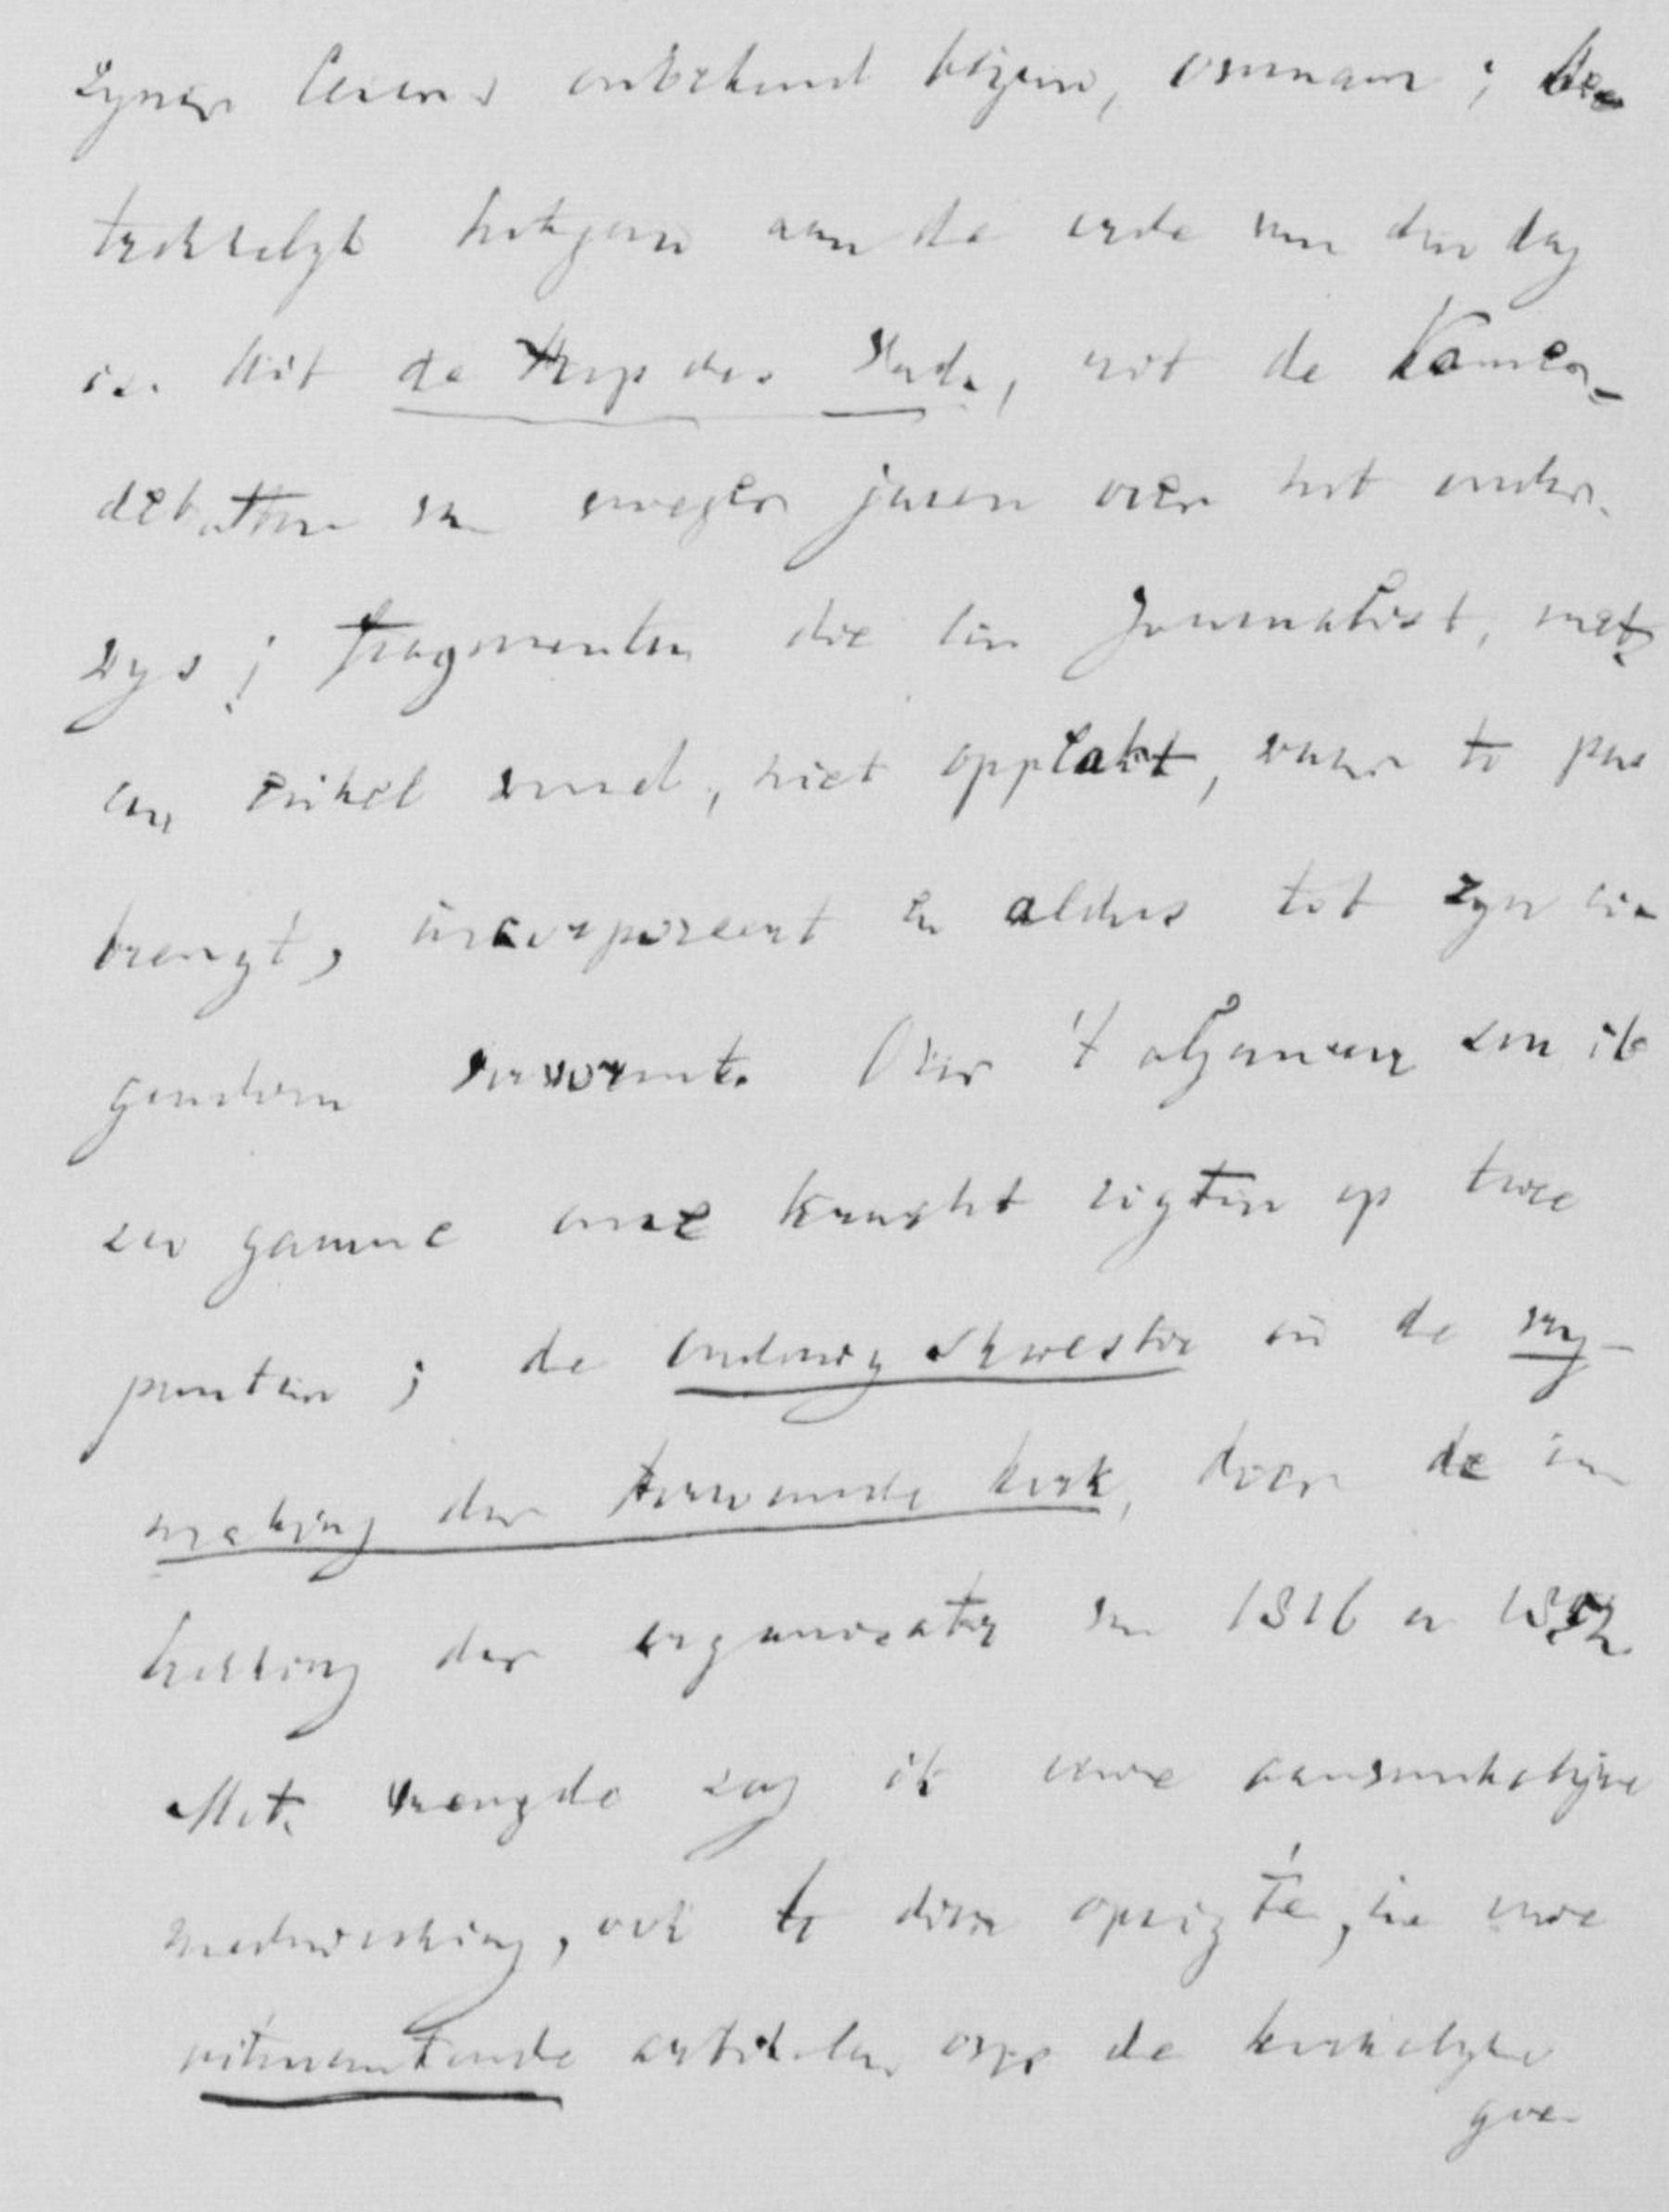 zyner lezers onbekend blyven, overnam; be-
trekkelyk hetgeen aan de orde van den dag
is. Uit de Hoop des Vad., uit de Kamer-
debatten van vroeger jaren over het onder-
wys; fragmenten die een Journalist, met
een enkel woord, niet opplakt, waar te pas
brengt, incorporeert en aldus tot zyn ei-
gendom vervormt. Over 't algemeen zou ik
zoo gaarne onze kracht rigten op twee
punten; de onderwyskwestie en de vry-
making der Hervormde kerk, door de in
trekking der organisatie van 1816 en 1852
Met vreugde zag ik uwe aanvankelijke
medewerking, ook te dien opzigte, in uwe
uitmuntende artikelen over de kerkelyke
goe-